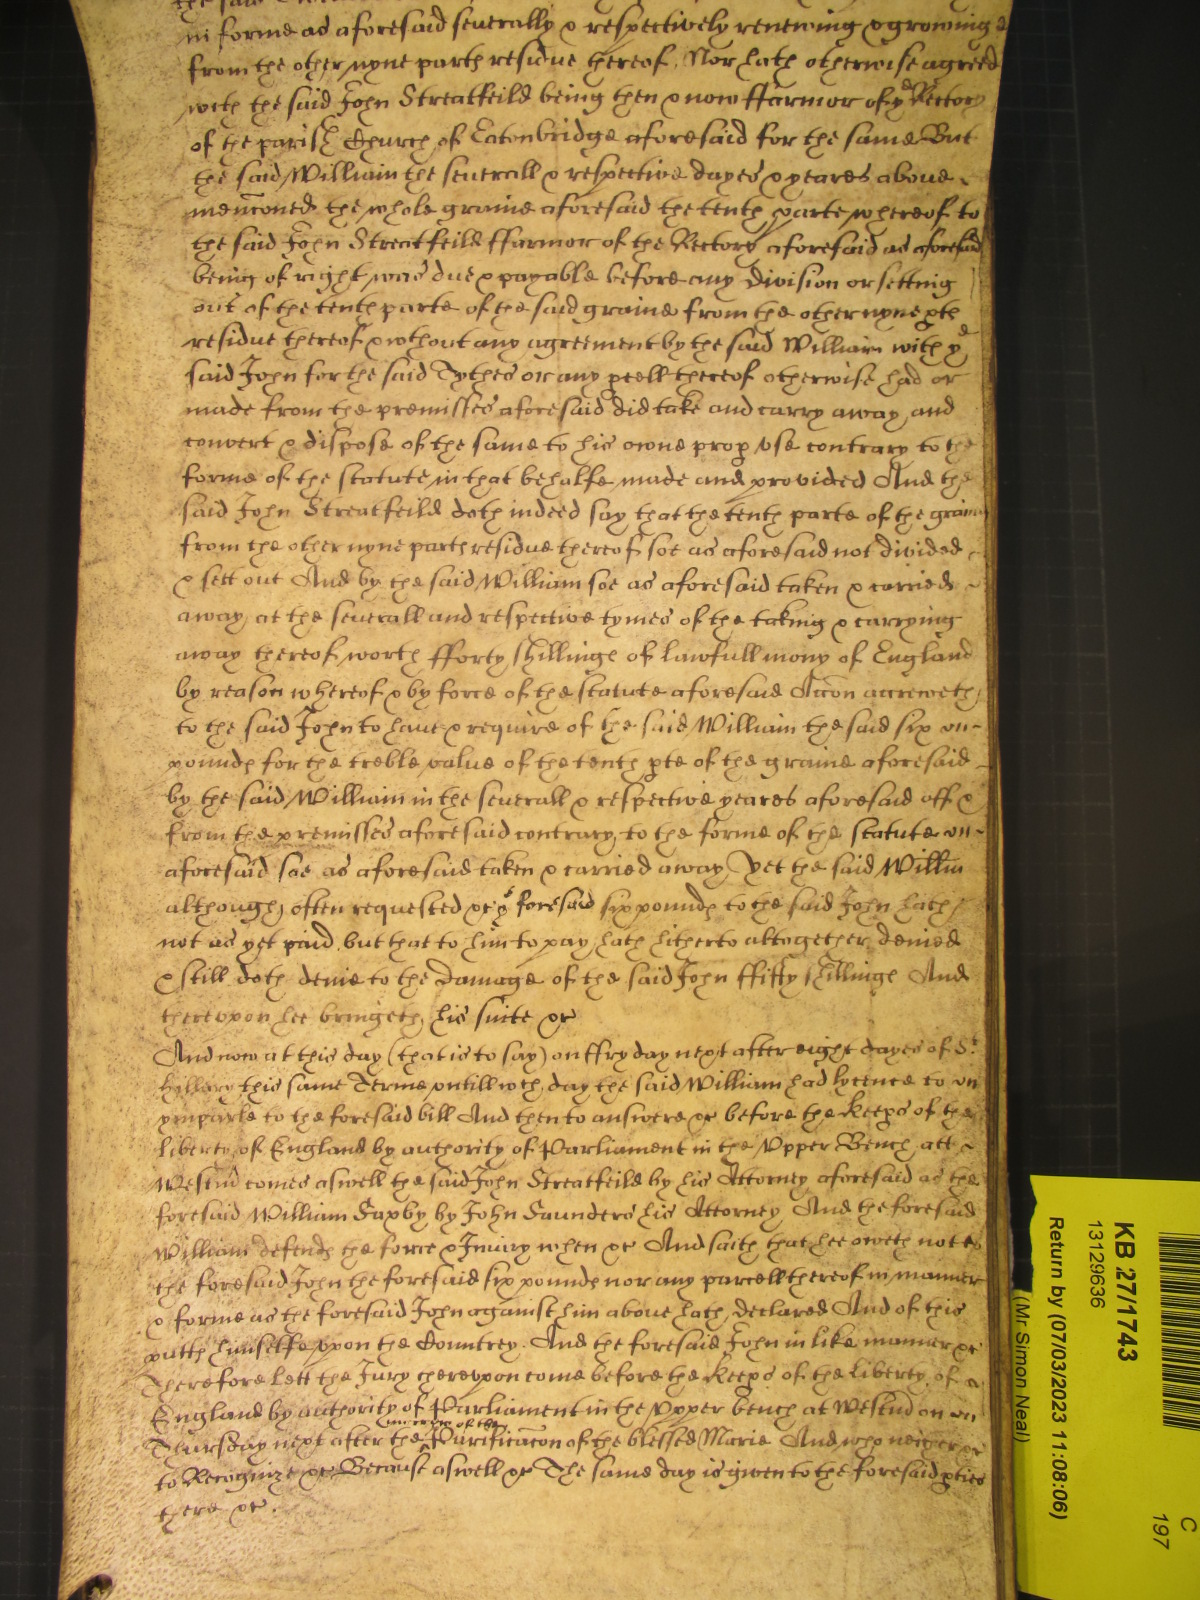 the said
in forme as aforesaid severally & respectively renewing & growing &
from the other nyne parth residue thereof, Nor hath otherwise agreed
with the said John Streatfeild being then & now ffarmor of ye Rectory
of the parish Church of Eatonbridge aforesaid for the same But
the said William the severall & respective dayes & yeares above
menconed the whole graine aforesaid the tenth parte whereof to
the said John Streatfeild ffarmor of the Rectory aforesaid as aforesaid
being of right was due & payable before any division or setting
out of the tenth parte of the said graine from the other nyne pth
residue thereof & wthout any agreement by the said William with ye
said John for the said Tythes or any pcell thereof otherwise had or
made from the premisses aforesaid did take and carry away and
convert & dispose of the same to his owne prop use contrary to the
forme of the statute in that behalfe made and provided And the
said John Streatfeild doth indeed say that the tenth parte of the graine
from the other nyne parth residue thereof soe as aforesaid not divided
& sett out And by the said William soe as aforesaid taken & carried
away at the severall and respective tymes of the taking & carrying
away thereof worth fforty shillinge of lawfull mony of England
by reason whereof & by force of the statute aforesaid Accon accreweth
to the said John to have & require of the said William the said six
pounde for the treble value of the tenth pte of the graine aforesaid
by the said William in the severall & respective yeares aforesaid off &
from the premisses aforesaid contrary to the forme of the statute
aforesaid soe as aforesaid taken & carried away, Yet the said Willm
although often requested &c ye foresaid six pounde to the said John hath
not as yet paid, but that to him to pay hath hitherto altogether denied
& still doth denie to the damage of the said John ffifty shillinge And
thereupon hee bringeth his suite &c
And now at this day (that is to say) on ffryday next after eight dayes of St
Hillary this same Terme untill wch day the said William had lycence to
imparle to the foresaid bill And then to answere &c before the Keeps of the
Liberty of England by authority of Parliament in the Upper Bench att
Westmr comes aswell the said John Streatfeild by his Attorney aforesaid as the
foresaid William Saxby by John Saunders his Attorney And the foresaid
William defende the force & Iniury when &c And saith that hee oweth not to
the foresaid John the foresaid six pounde nor any parcell thereof in manner
& forme as the foresaid John against him above hath declared And of this
putth himselfe upon the Countrey. And the foresaid John in like manner &c
Therefore lett the Jury thereupon come before the Keeps of the Liberty of
England by authority of Parliament in the Upper bench at Westmr on
morrow of the
Thursday next after the Purificacon of the blessed Marie And who neither &c
to Recognize &c Because aswell &c The same day is given to the foresaid pties
there &c.
KB 27/1743
13129636
Return by (07/03/2023 11:08:06)
(Mr Simon Neal)
C
197